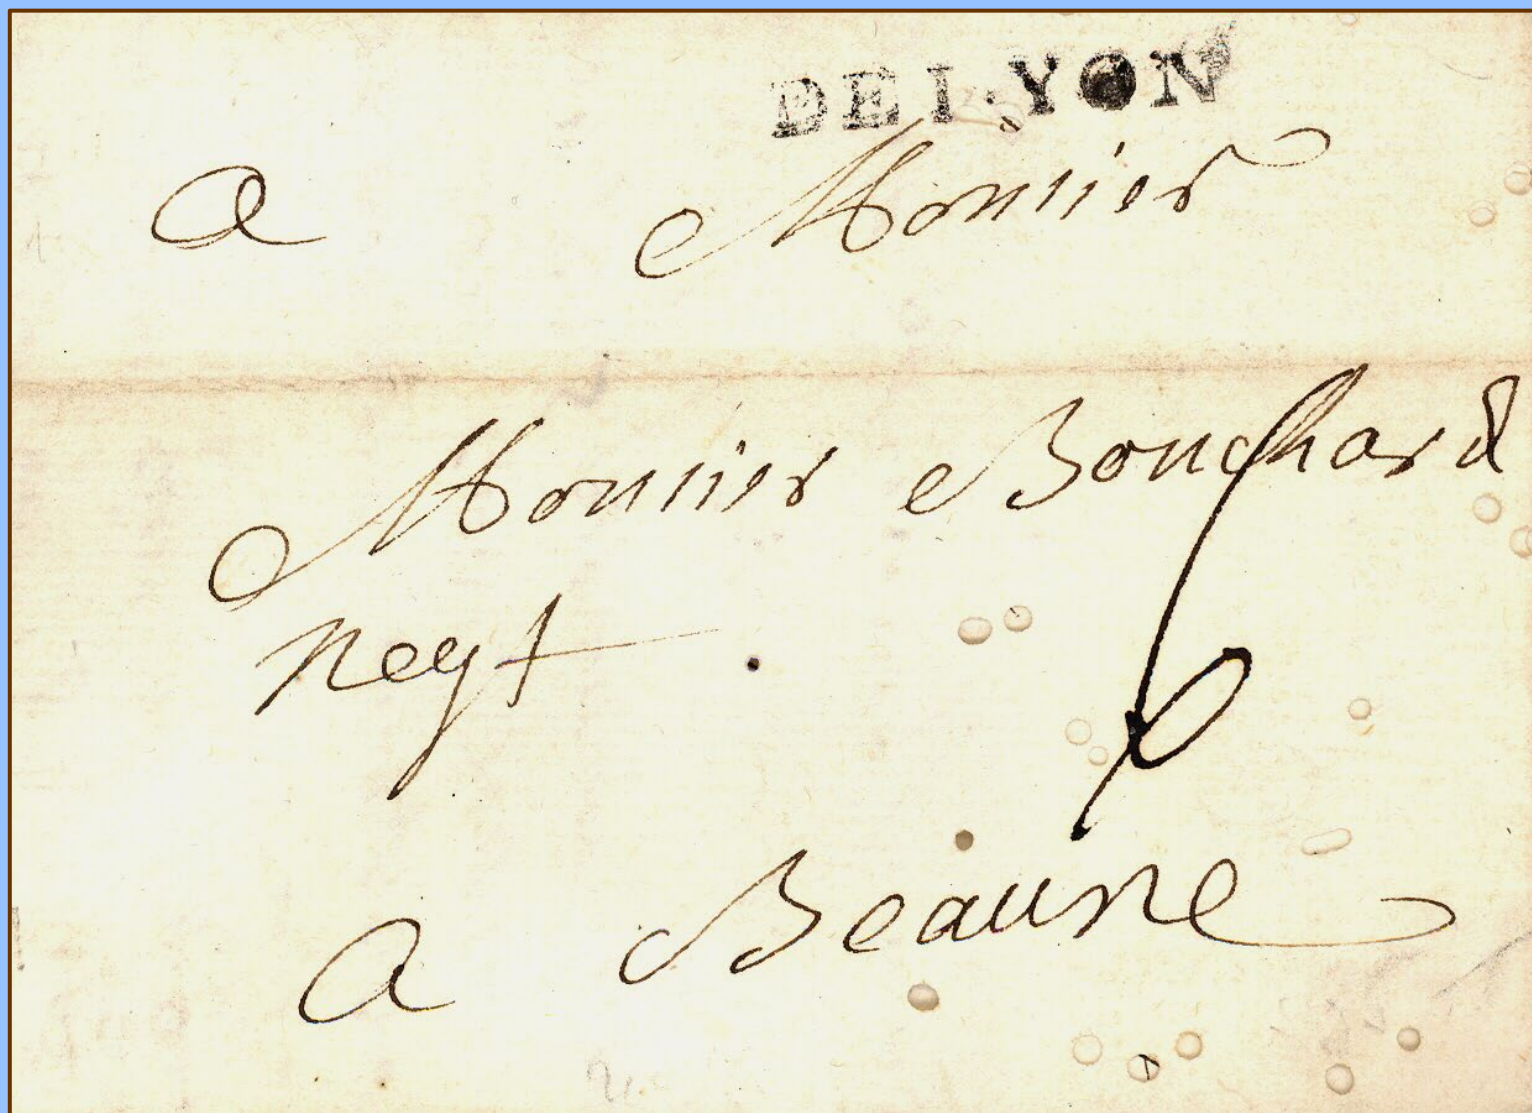 DE LYON
a Monsier
Monsier Bouchard
negt
a Beaune